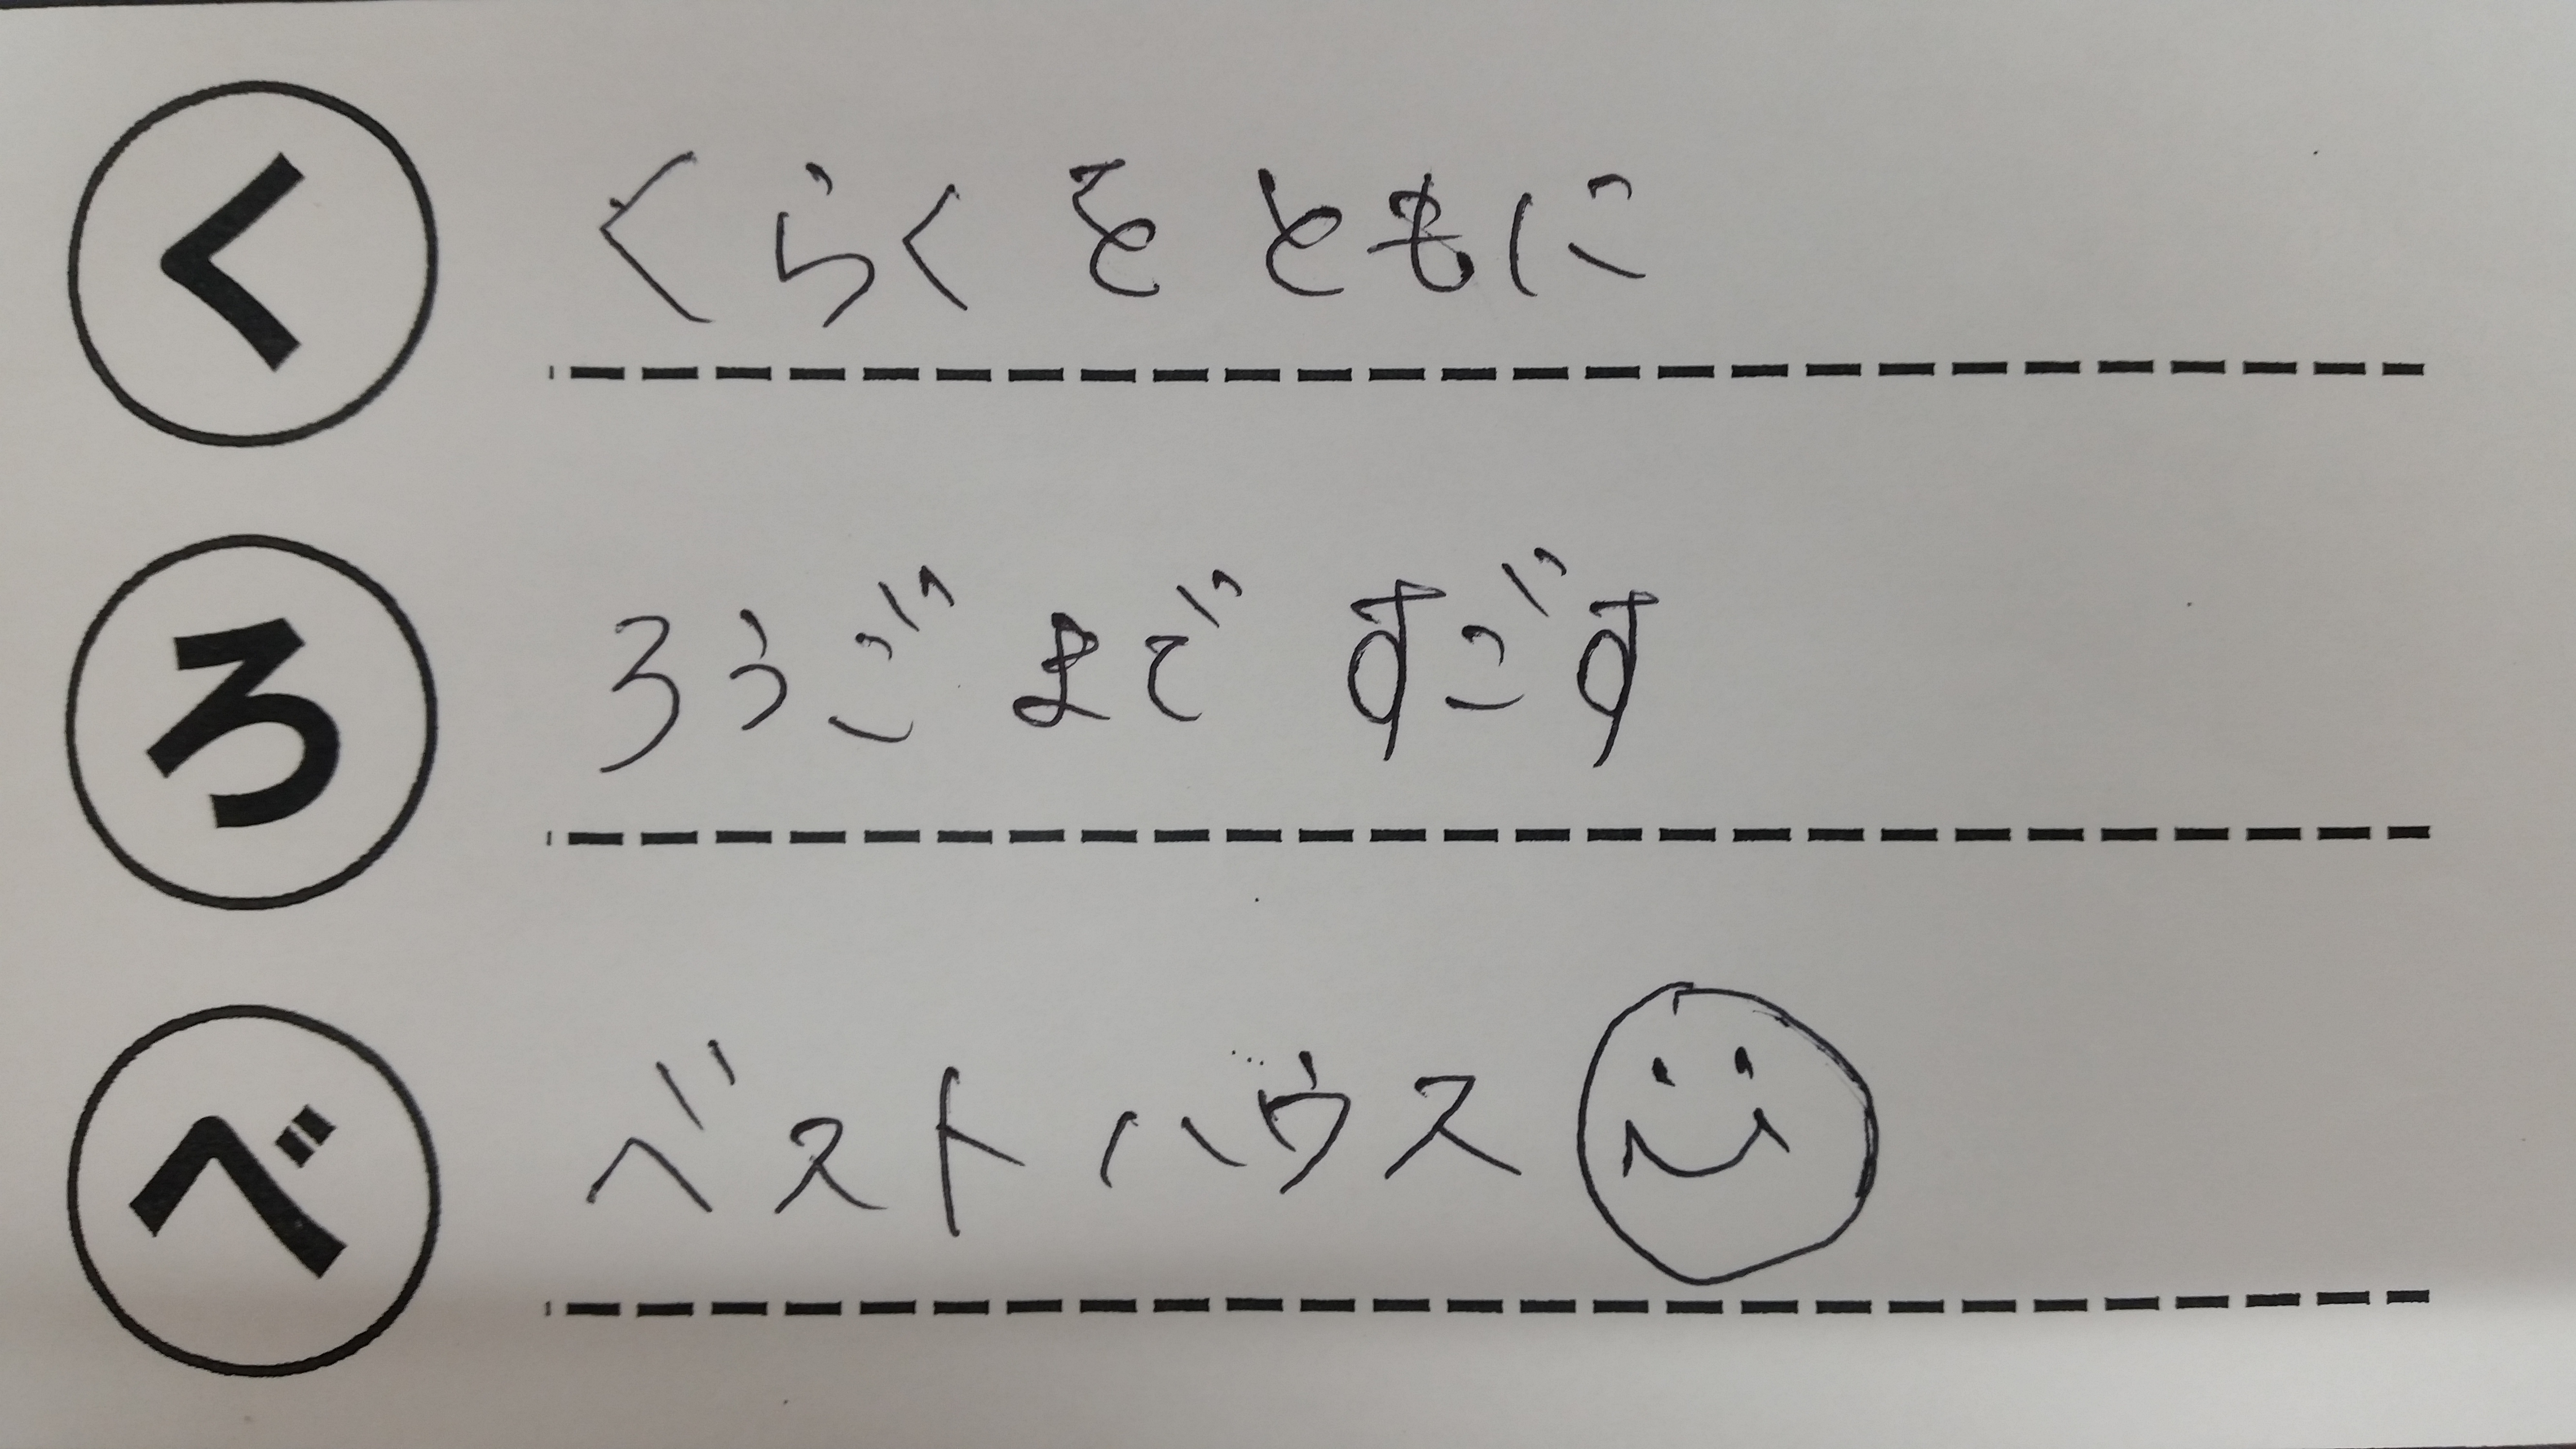 く くらくを ともに
ろ ろうご まで すごす
べ ベスト ハウス